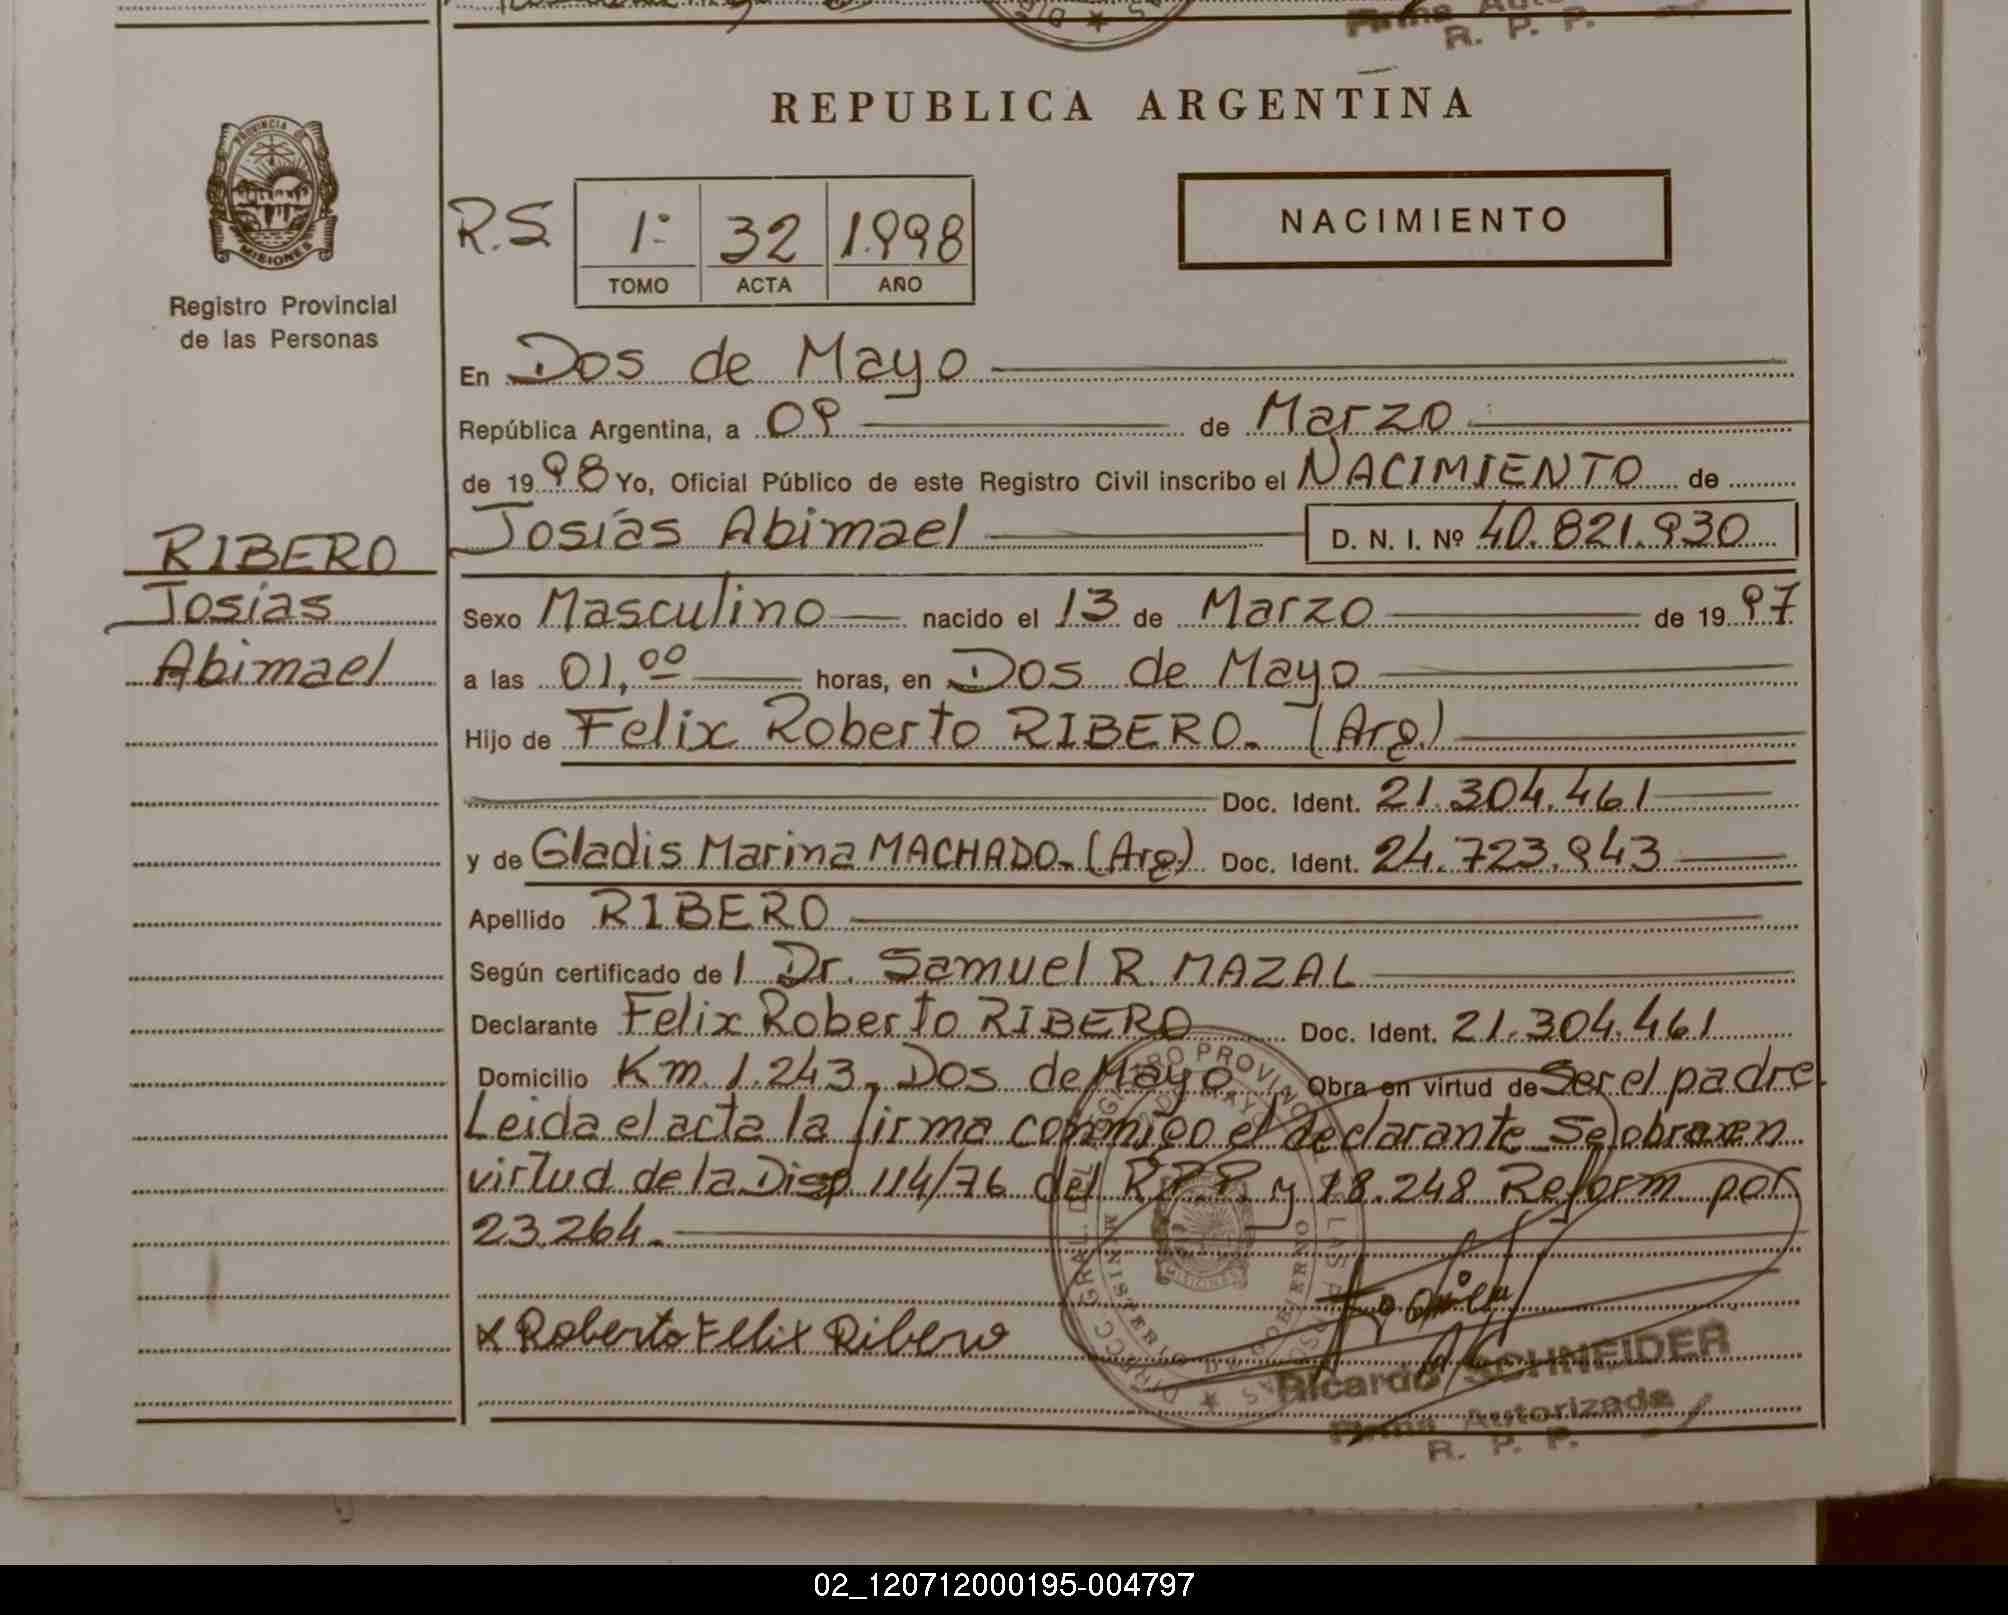 Firma Auto
R. P. P.
REPUBLICA ARGENTINA
PROVINCIA DE
MISIONES
Registro Provincial
de las Personas
R.S 1º 32 1.998
TOMO ACTA AÑO
NACIMIENTO
En Dos de Mayo
República Argentina, a 09 de Marzo
de 19 98 Yo, Oficial Público de este Registro Civil inscribo el NACIMIENTO de
Josías Abimael D. N. I. Nº 40.821.930
RIBERO
Josías
Abimael
Sexo Masculino nacido el 13 de Marzo de 19 97
a las 01,00 horas, en Dos de Mayo
Hijo de Felix Roberto RIBERO. (Arg)
Doc. Ident. 21.304.461
y de Gladis Marina MACHADO. (Arg) Doc. Ident. 24.723.943
Apellido RIBERO
Según certificado de l Dr. Samuel R. MAZAL
Declarante Felix Roberto RIBERO Doc. Ident. 21.304.461
Domicilio Km 1.243, Dos de Mayo Obra en virtud de Ser el padre
Leida el acta la firma conmigo el declarante Se obra en
virtud de la Disp 114/76 del R.P.P. y 18.248 Reform por
23.264.
x Roberto Felix Ribero
DIRECC. GRAL. DEL REGISTRO PROVINCIAL DE LAS PERSONAS
MINISTERIO DE GOBIERNO
MISIONES
Ricardo SCHNEIDER
Firma Autorizada
R. P. P.
02_120712000195-004797